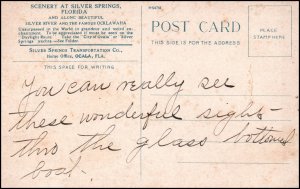 SCENERY AT SILVER SPRINGS,
FLORIDA
AND ALONG BEAUTIFUL
SILVER RIVER AND THE FAMOUS OCKLAWAHA
Unsurpassed in the World in grandeur and weird en-
chantment. To be appreciated it must be seen on the
Daylight Route. Take the
Springs
SILVER SPRINGS TRANSPORTATION CO.,
Home Office, OCALA, FLA.
THIS SPACE FOR WRITING
POST CARD
THIS SIDE IS FOR THE ADDRESS
PLACE
STAMP HERE
You can really see
these wonderful sights
thro the glass bottomed
boat.